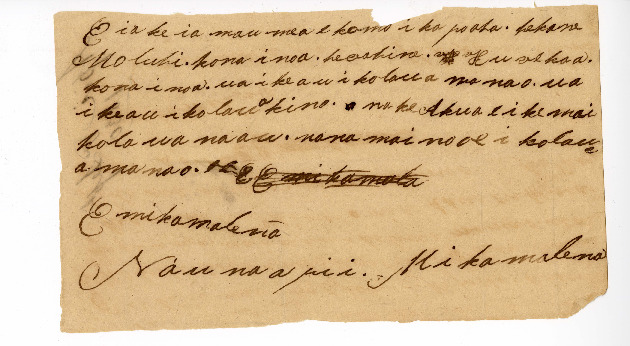 E ia ke ia mau mea e komo i ka poata. ke kane
Moluhi. kona inoa. ka wahine.
kona inoa. ua ike au i ko laua manao. ua
ike au i ko laua kino. a na ke Akua e ike mai
ko laua naau. nana mai no oe i ko lau=
a manao.
E mikamalena
Na'u na apii. Mikamalena